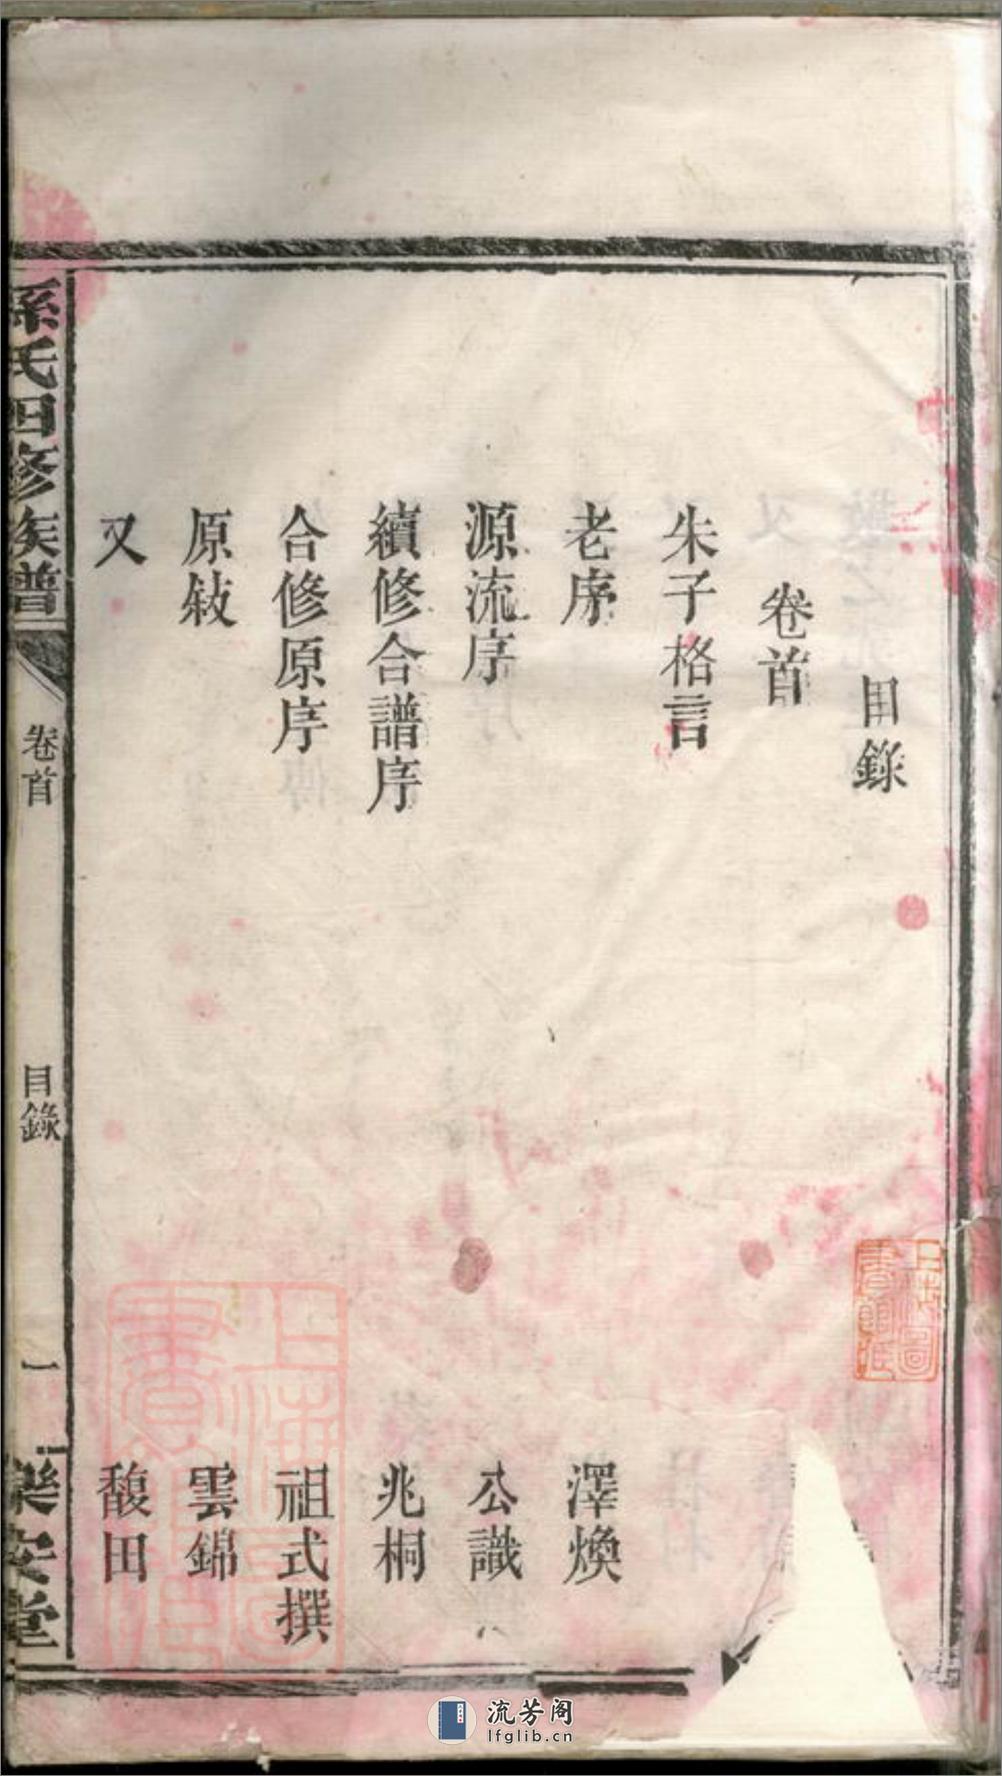 目錄
卷首
朱子格言
老序 澤煥
源流序 公識
續修合譜序 兆桐
合修原序 祖式撰
原敍 雲錦
又 馥田
孫氏四修族譜 卷首 目錄 一 樂安堂
上海圖書館藏
流芳阁
lfglib.cn